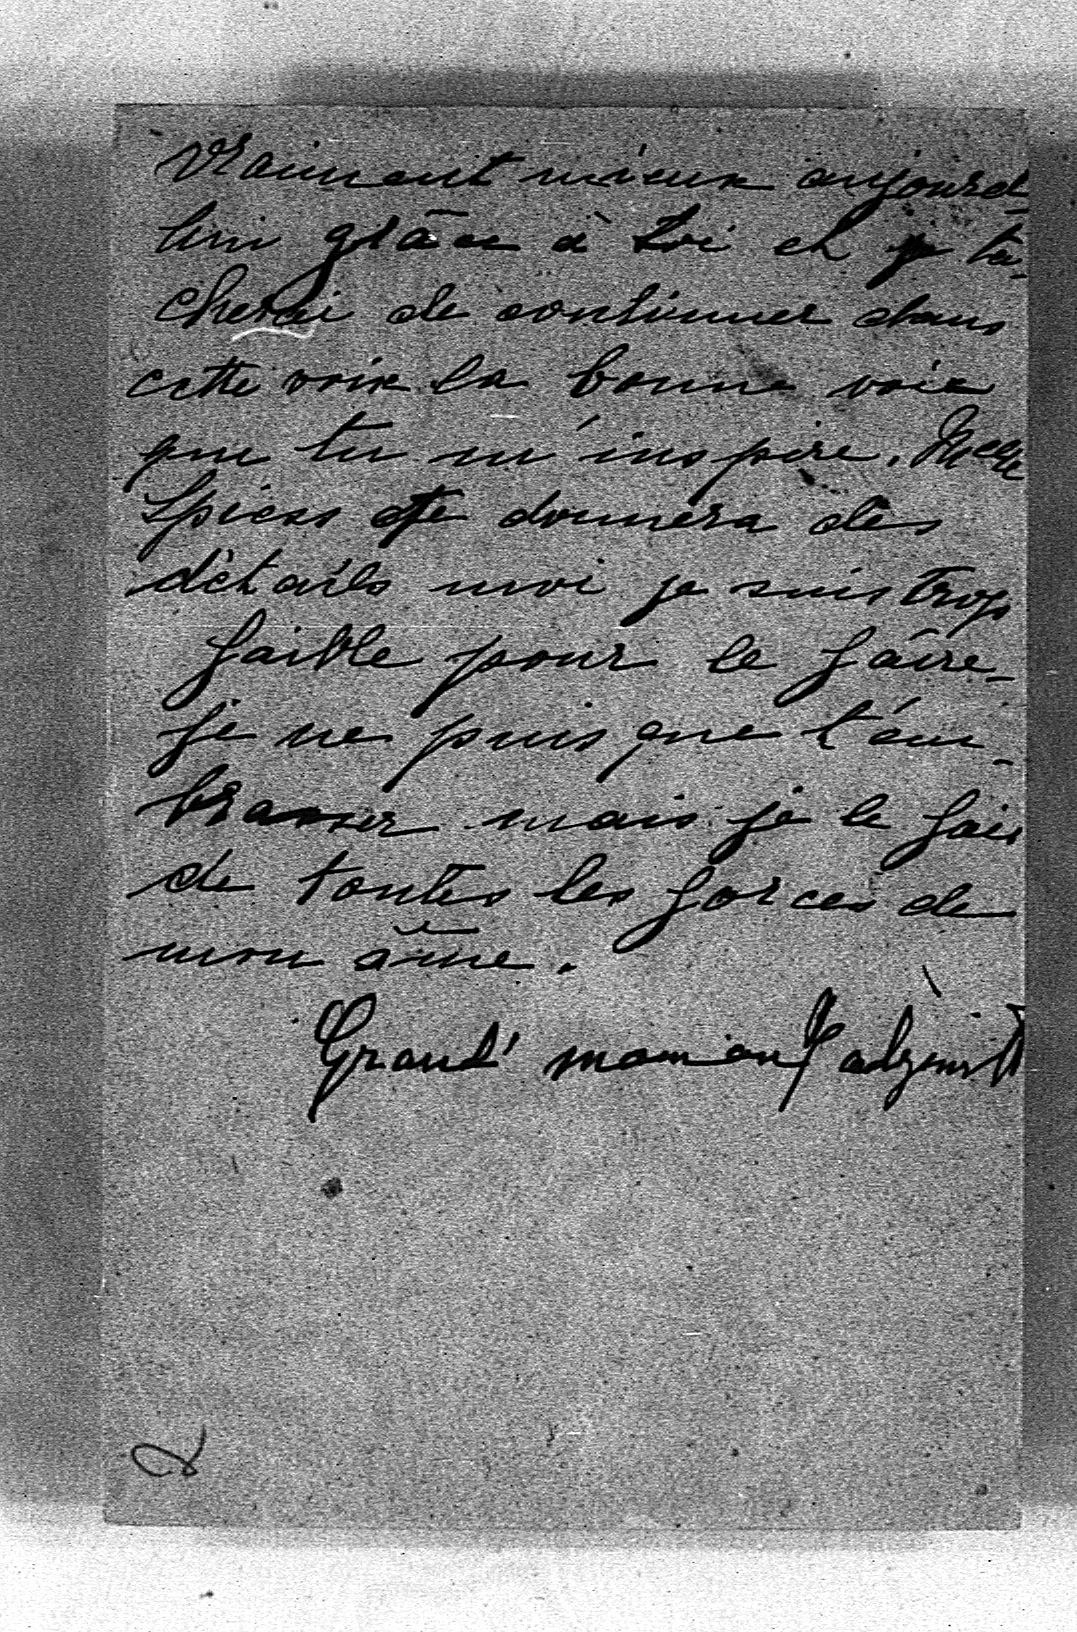 vraiment mieux aujourd-
hui grâce à toi et je ta-
cherai de continuer dans
cette voix la bonne voie
que tu m'inspire. Melle
Spiess te donnera des
détails moi je suis trop
faible pour le faire.
Je ne puis que t'em-
brasser mais je le fais
de toutes les forces de
mon âme.
Grand' maman